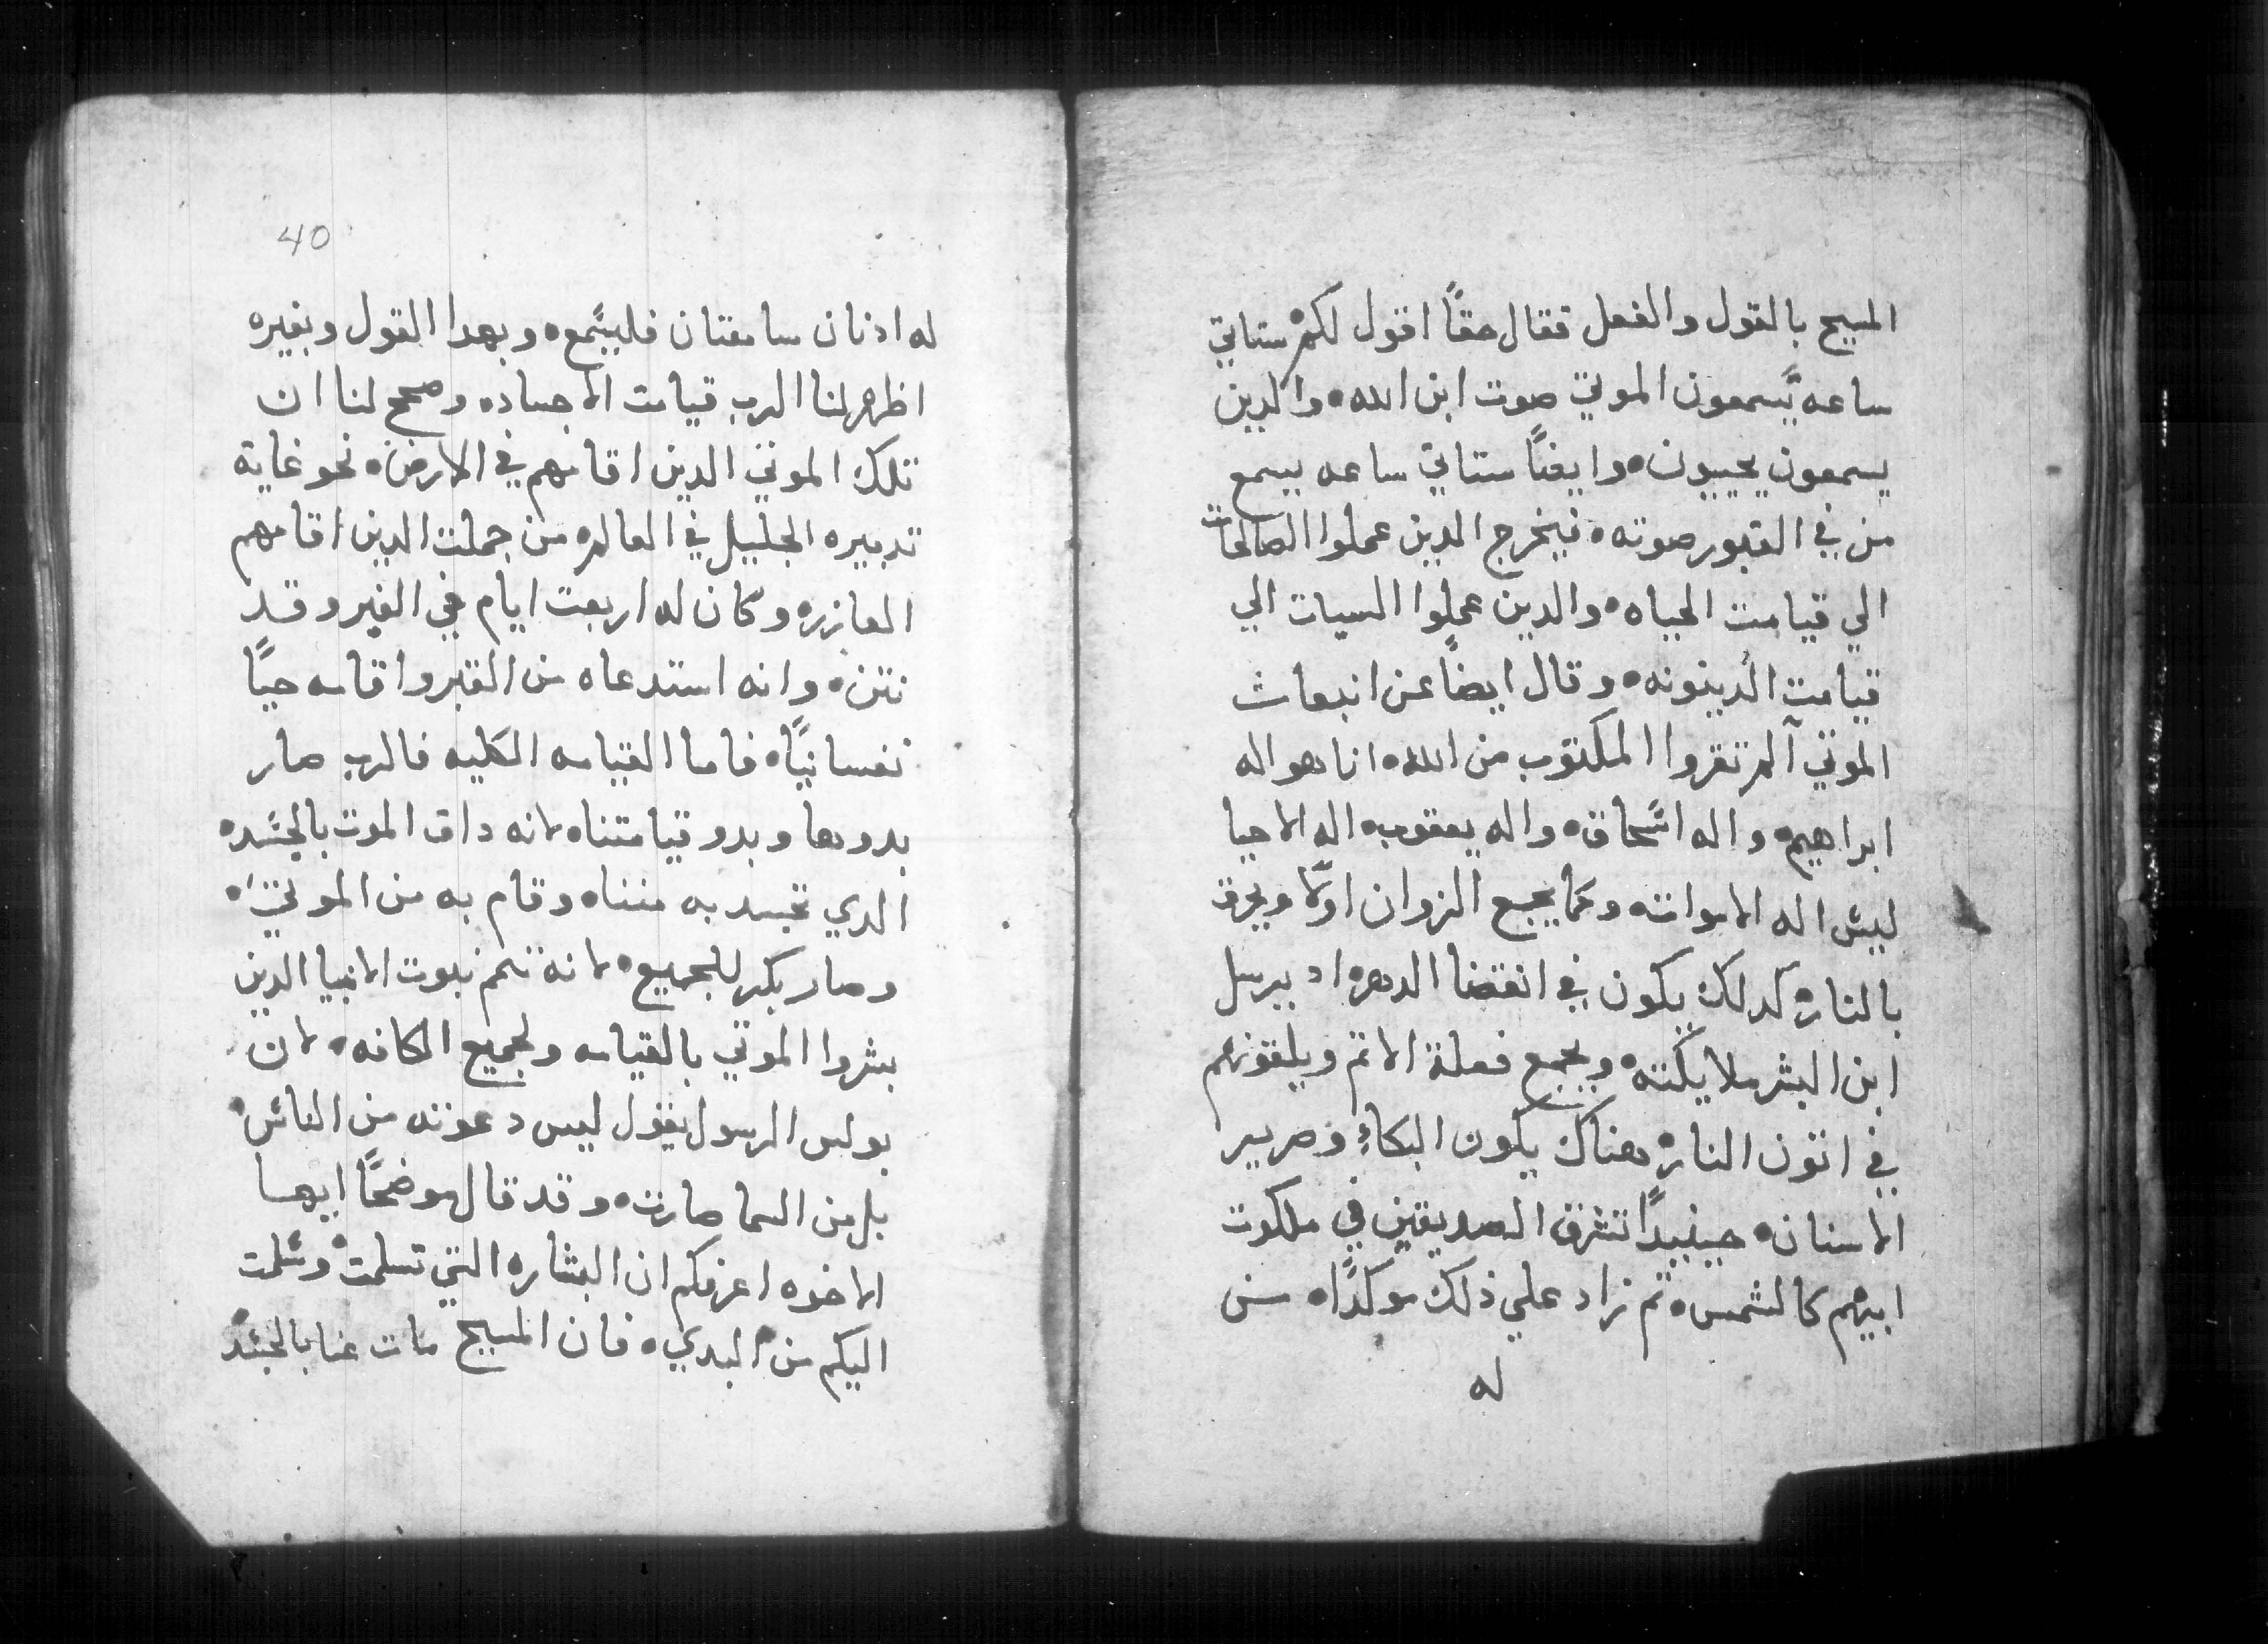 المسيح بالقول والفعل فقال حقًا اقول لكم ستاتي
ساعه يسمعون الموتي صوت ابن الله ه والدين
يسمعون يحييون ه وايضًا ستاتي ساعه يسمع
من في القبور صوته ه فيخرج الدين عملوا الصالحات
الي قيامت الحياه ه والدين عملوا السيات الي
قيامت الدينونه ه وقال ايضًا عن انبعاث
الموتي آلم تقروا المكتوب من الله ه انا هو اله
ابراهيم ه واله اسحاق ه واله يعقوب ه اله الاحيا
ليس اله الاموات ه وكما يجمع الزوان اولًا ويحرق
بالنار ه كدلك يكون في انقضا الدهر ه اد يرسل
ابن البشر ملايكته ه ويجمع فعلة الاتم ويلقونهم
في اتون النار ه هناك يكون البكاء وصرير
الاسنان ه حينيدًا تشرق الصديقين في ملكوت
ابيهم كالشمس ه تم زاد علي ذلك موكدًا ه من
له
40
له ادنان سامعتان فليسمع ه وبهدا القول وبغيره
اظهر لنا الرب قيامت الاجساد ه وصحح لنا ان
تلك الموتي الدين اقامهم في الارض ه نحو غاية
تدبيره الجليل في العالم ه من جملت الدين اقامهم
العازر ه وكان له اربعت ايام في القبر وقد
نتن ه وانه استدعاه من القبر واقامه حيًا
نفسانيًا ه فاما القيامه الكليه فالرب صار
بدوها وبدو قيامتنا ه لانه داق الموت بالجسد ه
الدي تجسد به منا ه وقام به من الموتي ه
وصار بكر للجميع ه لانه تمم نبوت الانبيا الدين
بشروا الموتي بالقيامه ولجميع الكافه ه لان
بولس الرسول يقول ليس دعوته من الناس ه
بل من السما صارت ه وقد قال موضحًا ايها
الاخوه اعرفكم ان البشاره التي تسلمت وسلمت
اليكم من البدي ه فان المسيح مات عنا بالجسد